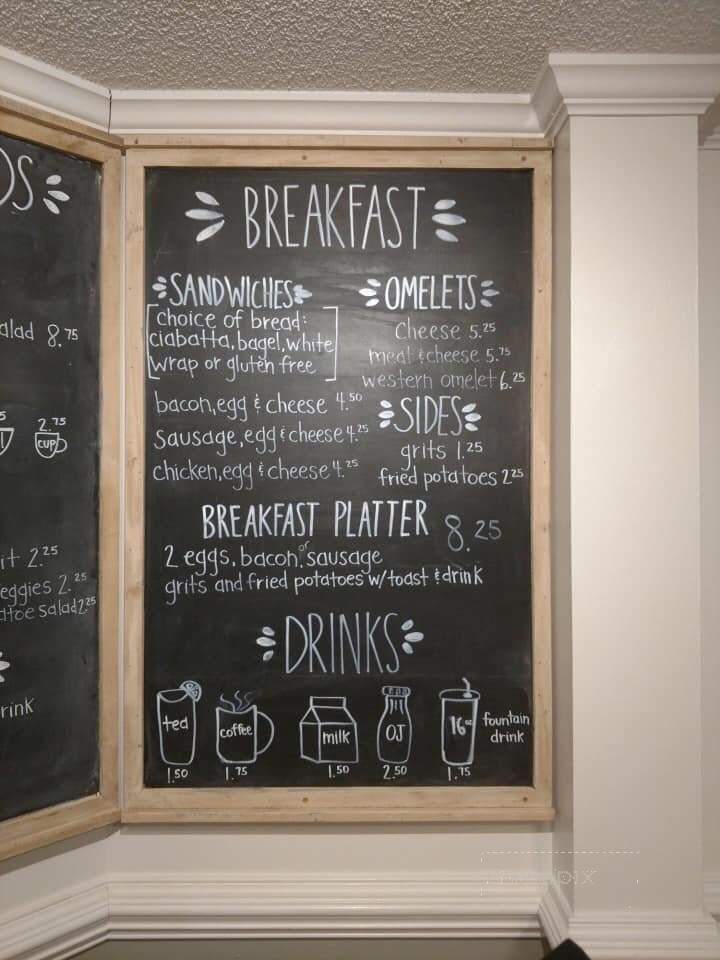 BREAKFAST
SANDWICHES
choice of bread:
ciabatta, bagel, white
wrap or gluten free
bacon, egg & cheese 4.50
sausage, egg & cheese 4.25
chicken, egg & cheese 4.25
OMELETS
cheese 5.25
meat & cheese 5.75
western omelet 6.25
SIDES
grits 1.25
fried potatoes 2.25
BREAKFAST PLATTER 8.25
2 eggs, bacon or sausage
grits and fried potatoes w/toast & drink
DRINKS
tea
1.50
coffee
1.75
milk
1.50
OJ
2.50
16oz
1.75
fountain
drink
DS
alad 8.75
2.75
CUP
it 2.25
eggies 2.25
atoe salad 2.25
rink